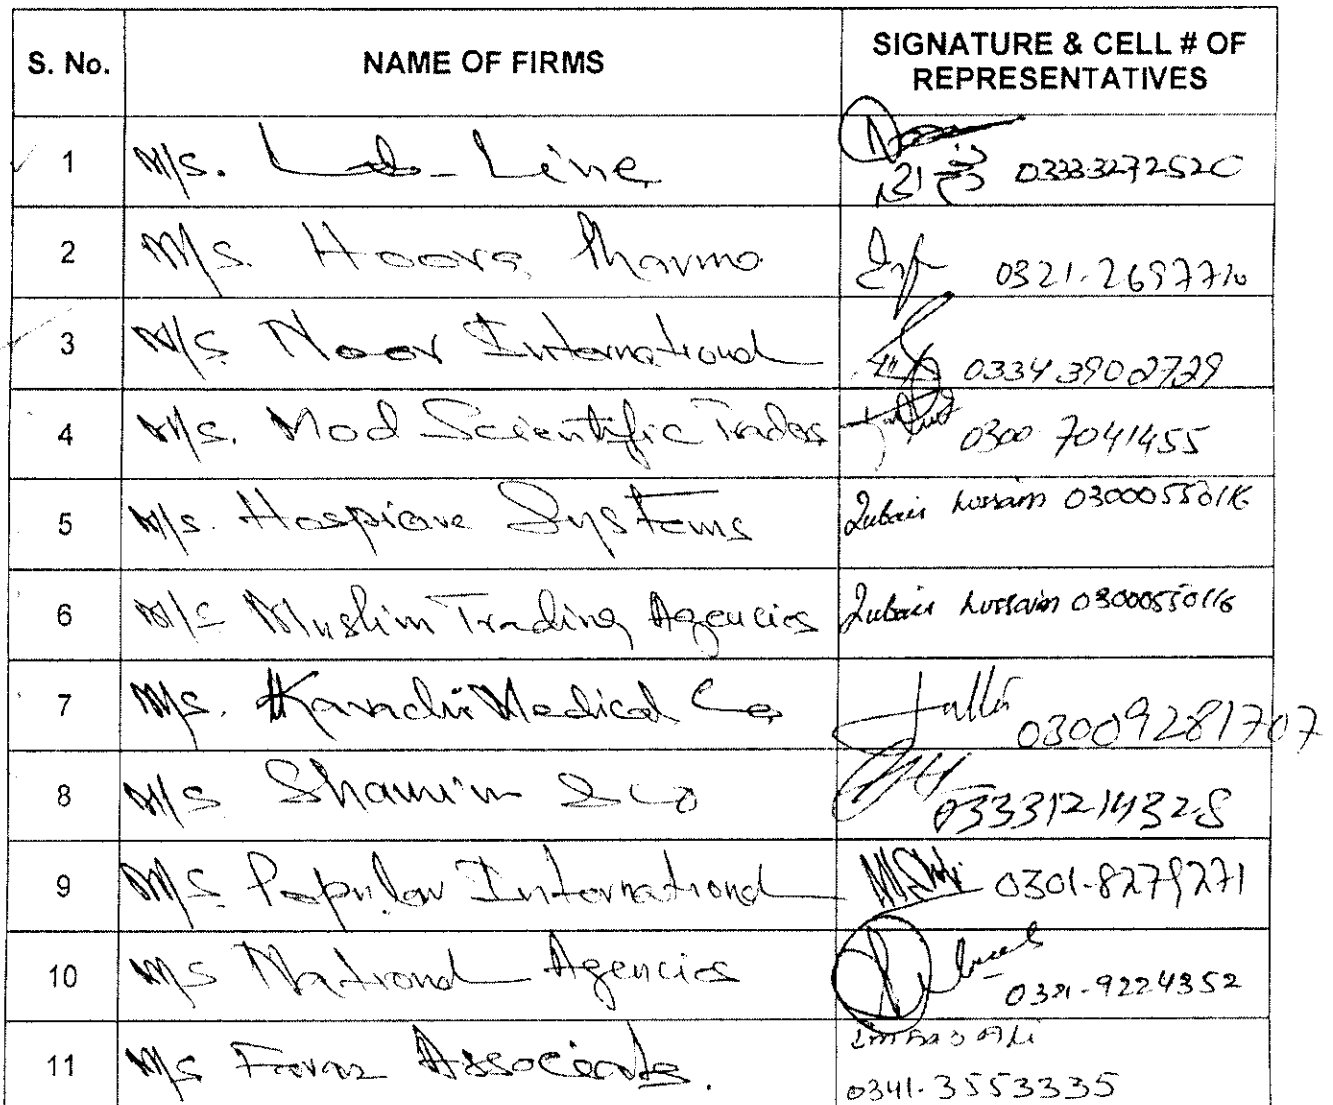 S. No. NAME OF FIRMS SIGNATURE & CELL # OF
REPRESENTATIVES
1 M/s. Lab-Line 03333272520
2 M/s. Hoora Pharma 0321-2697710
3 M/s Noor International
4 M/s. Mod Scientific Trades 0300 7041455
5 M/s. Hospicare Systems Zubair Hussain 03000550116
6 M/s Muslim Trading Agencies Zubair Hussain 03000550116
7 M/s. Karachi Medical Co 03009281707
8 M/s Shamim & Co
9 M/s Popular International 0301-8279271
10 M/s National Agencies 0321-9224352
11 M/s Faraz Associates. Ali
0341-3553335